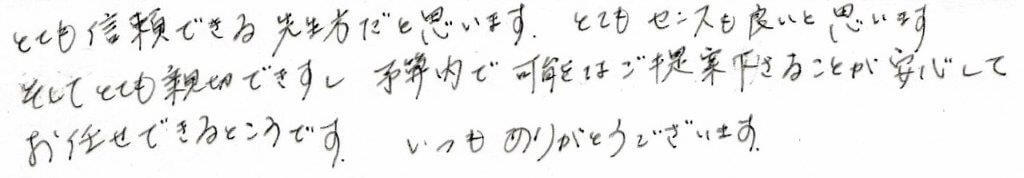 とても信頼できる先生方だと思います。とてもセンスも良いと思います
そしてとても親切ですし 予算内で可能なはご提案下さることが安心して
お任せできるところです。 いつもありがとうございます。